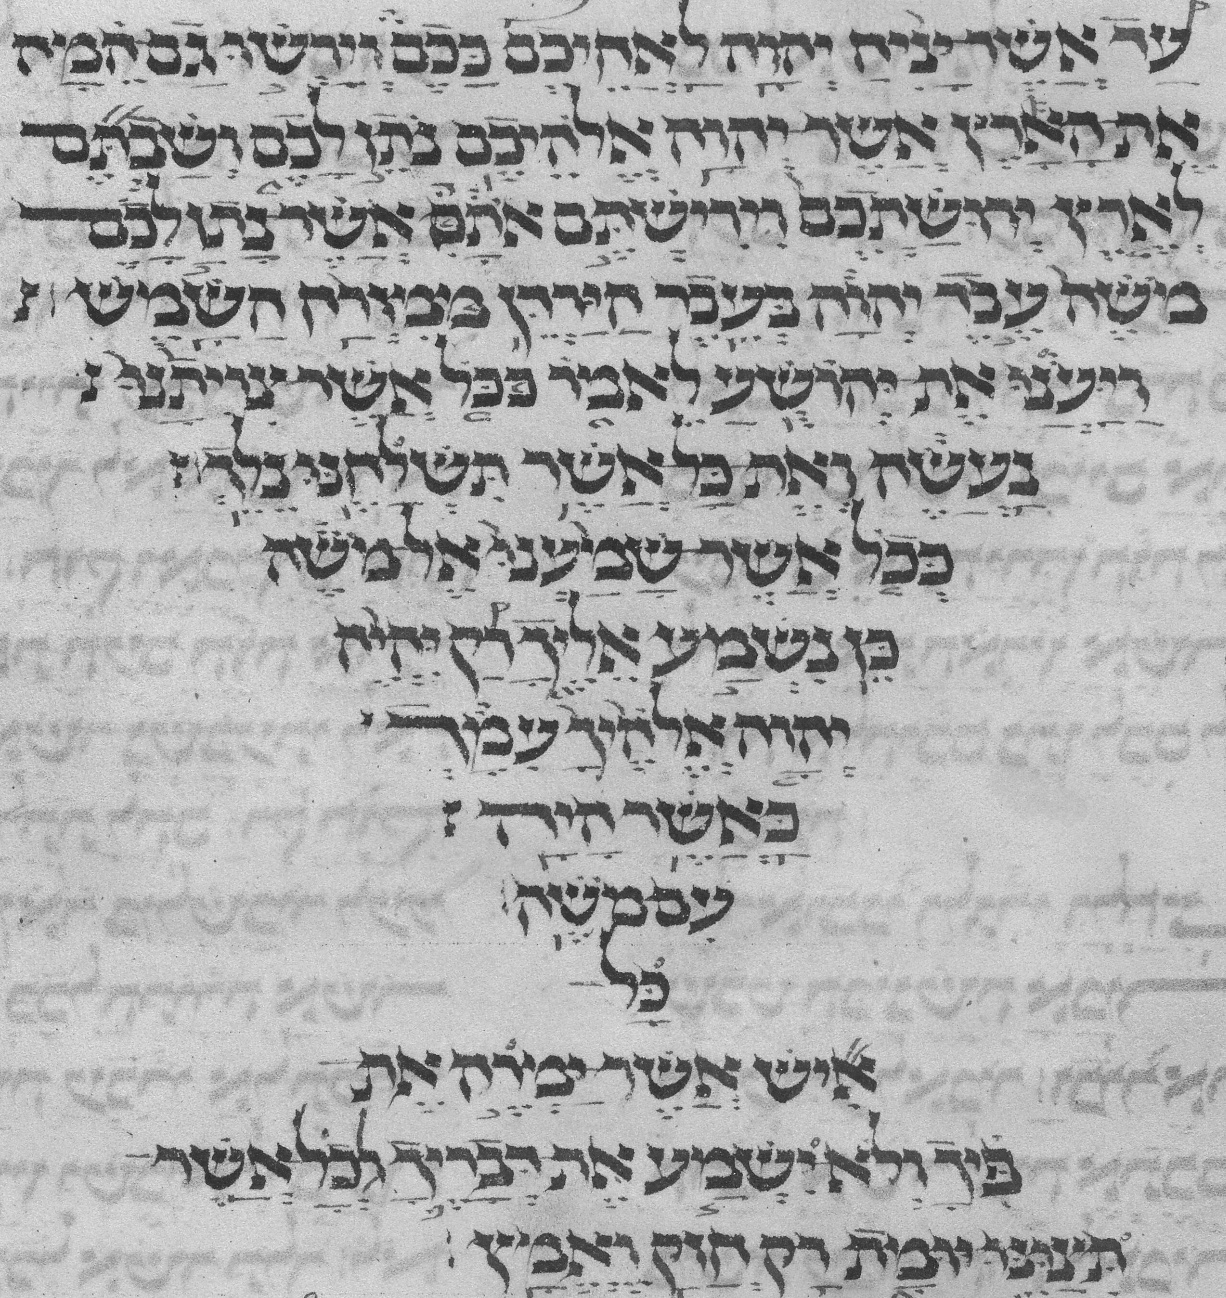 עד אשר יניח יהוה לאחיכם ככם וירשו גם המה
את הארץ אשר יהוה אלהיכם נתן לכם ושבתם
לארץ ירושתכם וירישתם אתם אשר נתן לכם
משה עבד יהוה בעבר הירדן ממזרח השמש׃
ויענו את יהושע לאמר ככל אשר צויתנו
נעשה ואת כל אשר תשלחנו נלך׃
ככל אשר שמענו אל משה
כן נשמע אליך רק יהיה
יהוה אלהיך עמך
כאשר היה
עם משה׃
כל
איש אשר ימרה את
פיך ולא ישמע את דבריך לכל אשר
תצונו יומת רק חזק ואמץ׃